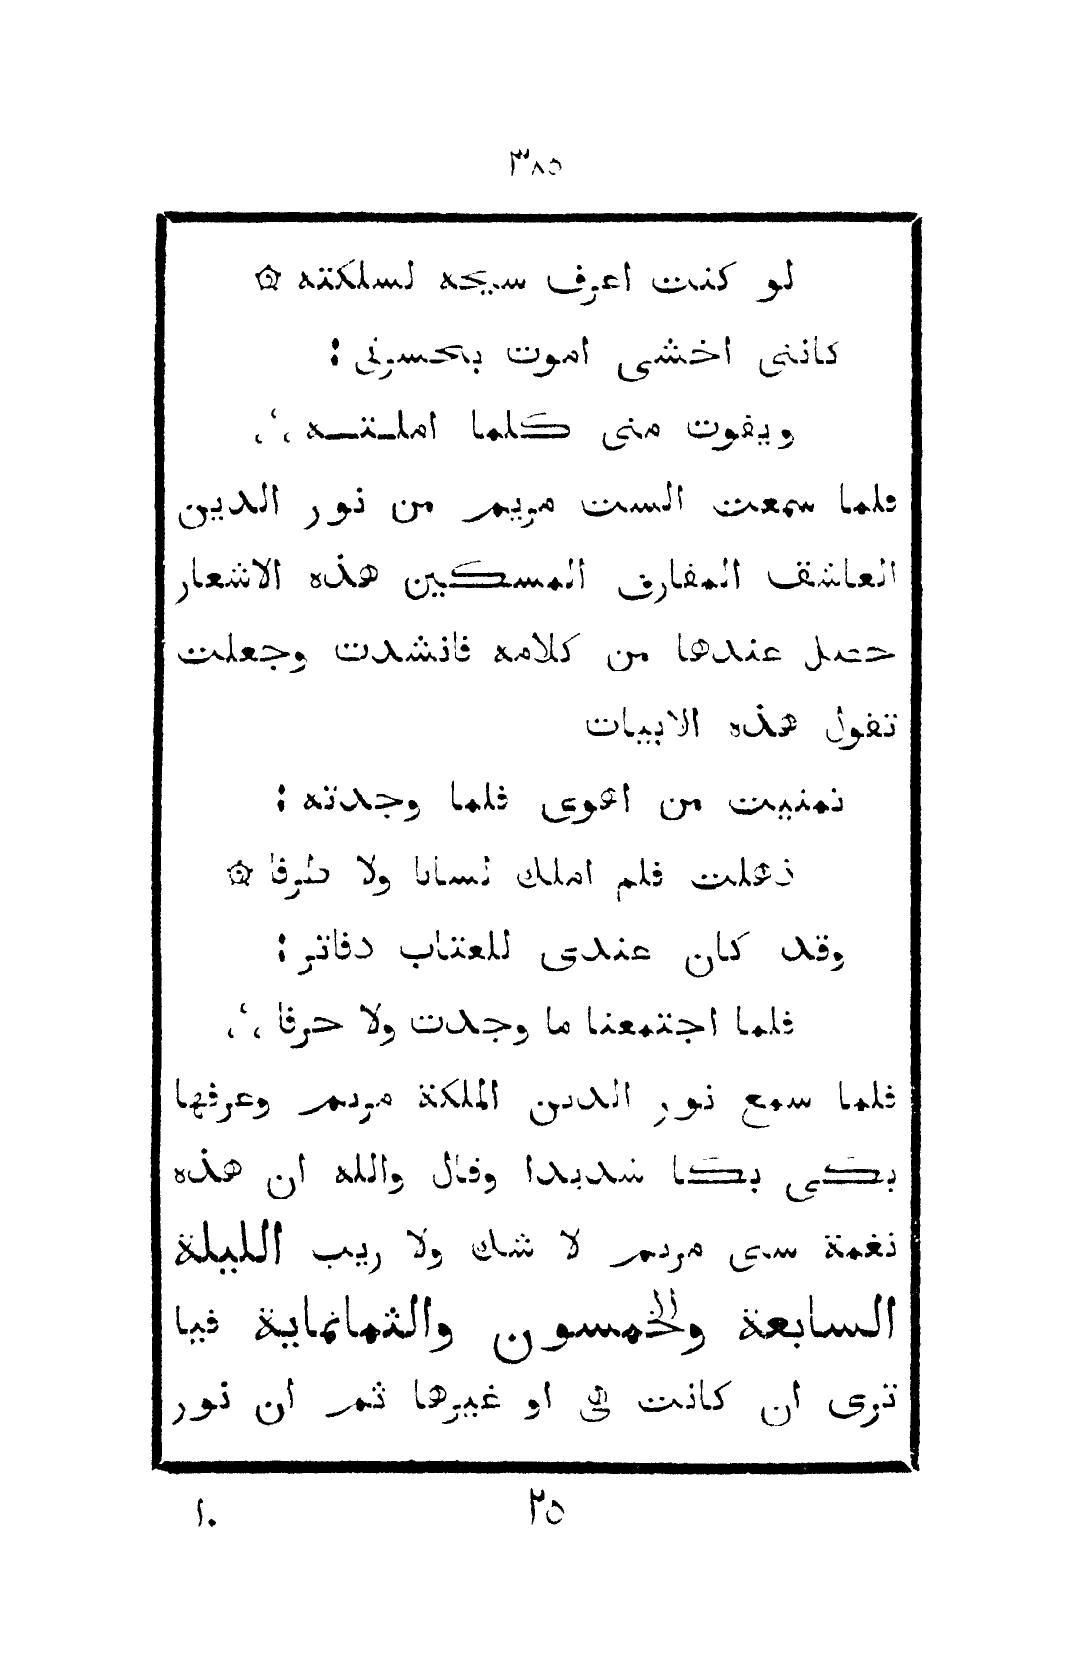 ٣٨٥
لو كنت اعرف سيحه لسلكته ۞
كاننى اخشى اموت بحسرتى :
ويفوت منى كلما املـتـه ∴
فلما سمعت الست مريم من نور الدين
العاشق المفارق المسكين هذه الاشعار
حصل عندها من كلامه فانشدت وجعلت
تقول هذه الابيات
تمنيت من اهوى فلما وجدته :
ذهلت فلم املك لسانا ولا طرفا ۞
وقد كان عندى للعتاب دفاتر :
فلما اجتمعنا ما وجدت ولا حرفا ∴
فلما سمع نور الدين الملكة مريم وعرفها
بكى بكا شديدا وقال والله ان هذه
نغمة ستى مريم لا شك ولا ريب الليلة
السابعة والخمسون والثمانماية فيا
ترى ان كانت هى او غيرها ثم ان نور
٢٥
١٠